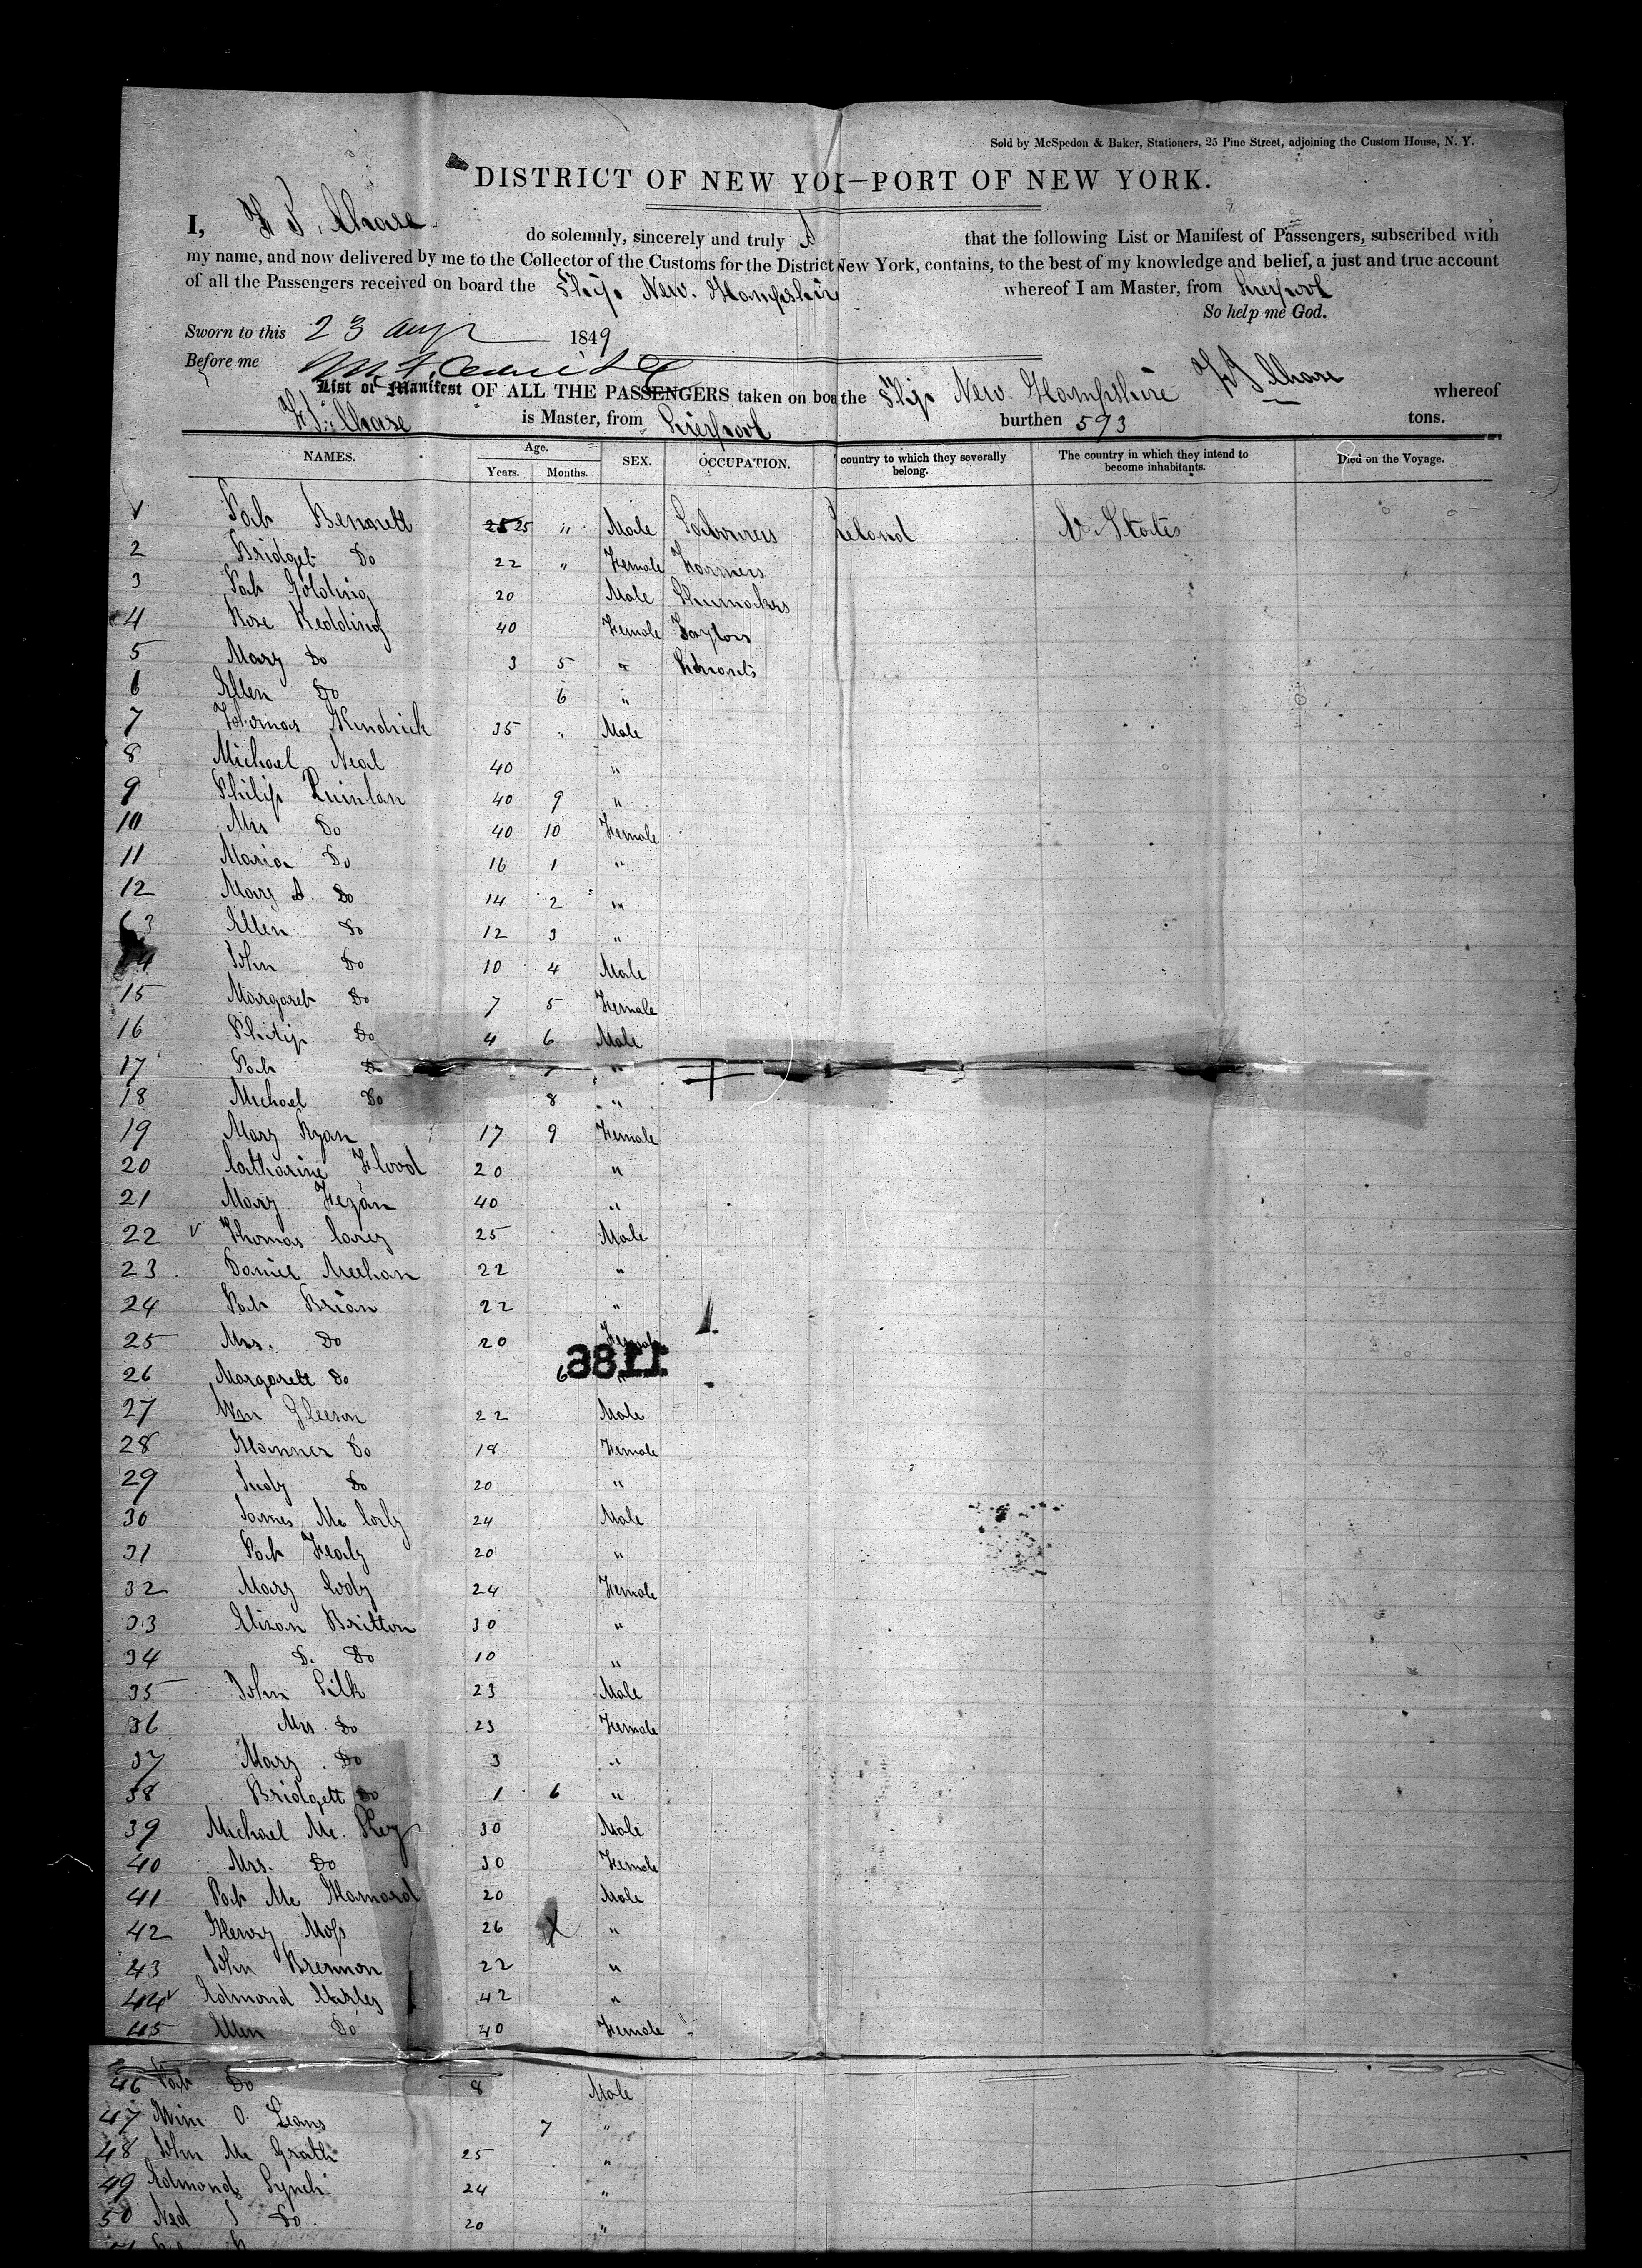 Sold by McSpedon & Baker, Stationers, 25 Pine Street, adjoining the Custom House, N. Y.
DISTRICT OF NEW YO—PORT OF NEW YORK.
I, Chase do solemnly, sincerely and truly that the following List or Manifest of Passengers, subscribed with
my name, and now delivered by me to the Collector of the Customs for the District New York, contains, to the best of my knowledge and belief, a just and true account
of all the Passengers received on board the Ship New Hampshire whereof I am Master, from Liverpool
So help me God.
Sworn to this 23 Aug 1849
Before me
List or Manifest OF ALL THE PASSENGERS taken on boa the Ship New Hampshire Chase whereof
Chase is Master, from Liverpool burthen 593 tons.
NAMES. Age. Years. Months. SEX. OCCUPATION. country to which they severally belong. The country in which they intend to become inhabitants. Died on the Voyage.
Pat Bennett 25 25 " Male Labourers Ireland U. States
2 Bridget Do 22 " Female Farmers
3 Pat Golding 20 Male Shumakers
4 Rose Redding 40 Female Taylors
5 Mary Do 3 5 "
6 Ellen Do 6 "
7 Kendrick 35 " Male
8 Michael Neal 40 "
9 Philip Quinlan 40 9 "
10 Mrs Do 40 10 Female
11 Maria Do 16 1 "
12 Mary A. Do 14 2 "
13 Ellen Do 12 3 "
14 John Do 10 4 Male
15 Margaret Do 7 5 Female
16 Philip Do 4 6 Male
17 Pat Do "
18 Michael Do 8 "
19 Mary Ryan 17 9 Female
20 Catharine Flood 20 "
21 Mary Fegan 40 "
22 Thomas Carey 25 Male
23 Daniel Meehan 22 "
24 Pat Brian 22 "
25 Mrs. Do 20 Female
1186
26 Margarett Do 6 "
27 Wm Gleeson 22 Male
28 Hanner Do 18 Female
29 Judy Do 20 "
30 James Mc 24 Male
31 Pat Healy 20 "
32 Mary Cody 24 Female
33 Elizan Britton 30 "
34 D. Do 10 "
35 John Silk 23 Male
36 Mrs. Do 23 Female
37 Mary Do 3 "
38 Bridgett Do 1 6 "
39 Michael Mc. 30 Male
40 Mrs. Do 30 Female
41 Pat Mc Hamard 20 Male
42 Henry Moss 26 X "
43 John Brennon 22 "
44 Edmond 42 "
45 Ellen Do 40 Female
46 Pat Do 8 Male
47 O. Leans 7 "
48 John Mc Grath 25 "
49 Edmond Lynch 24 "
50 Ned Do 20 "